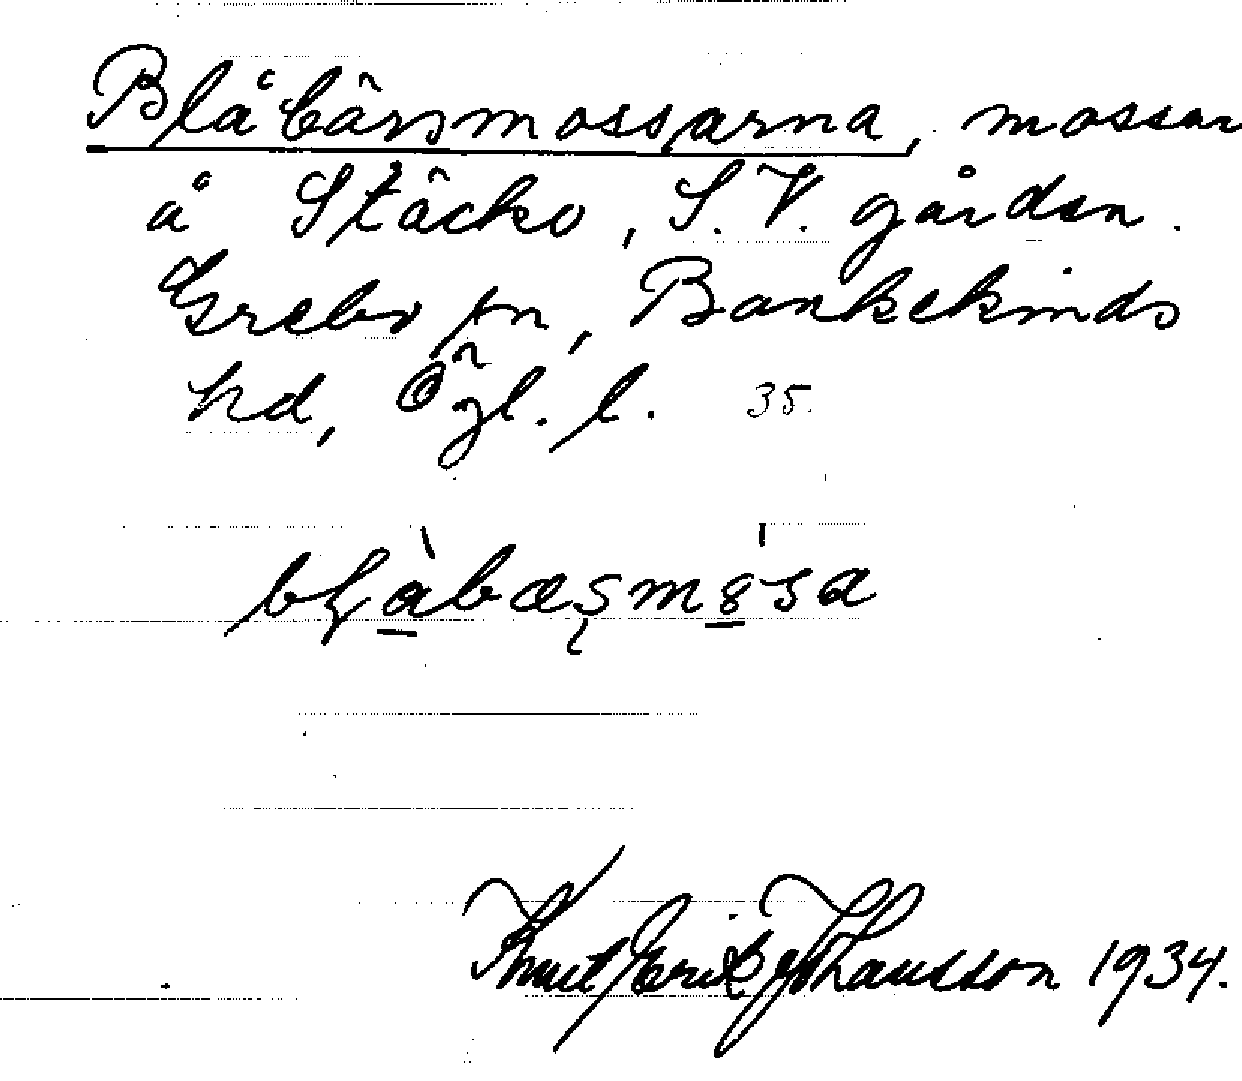 Blåbärsmossarna, mossar
å Stäcko, S.V. gården.
Grebo sn, Bankekinds
hd, Ögl. l. 35.
Knut Erik Johansson 1934.